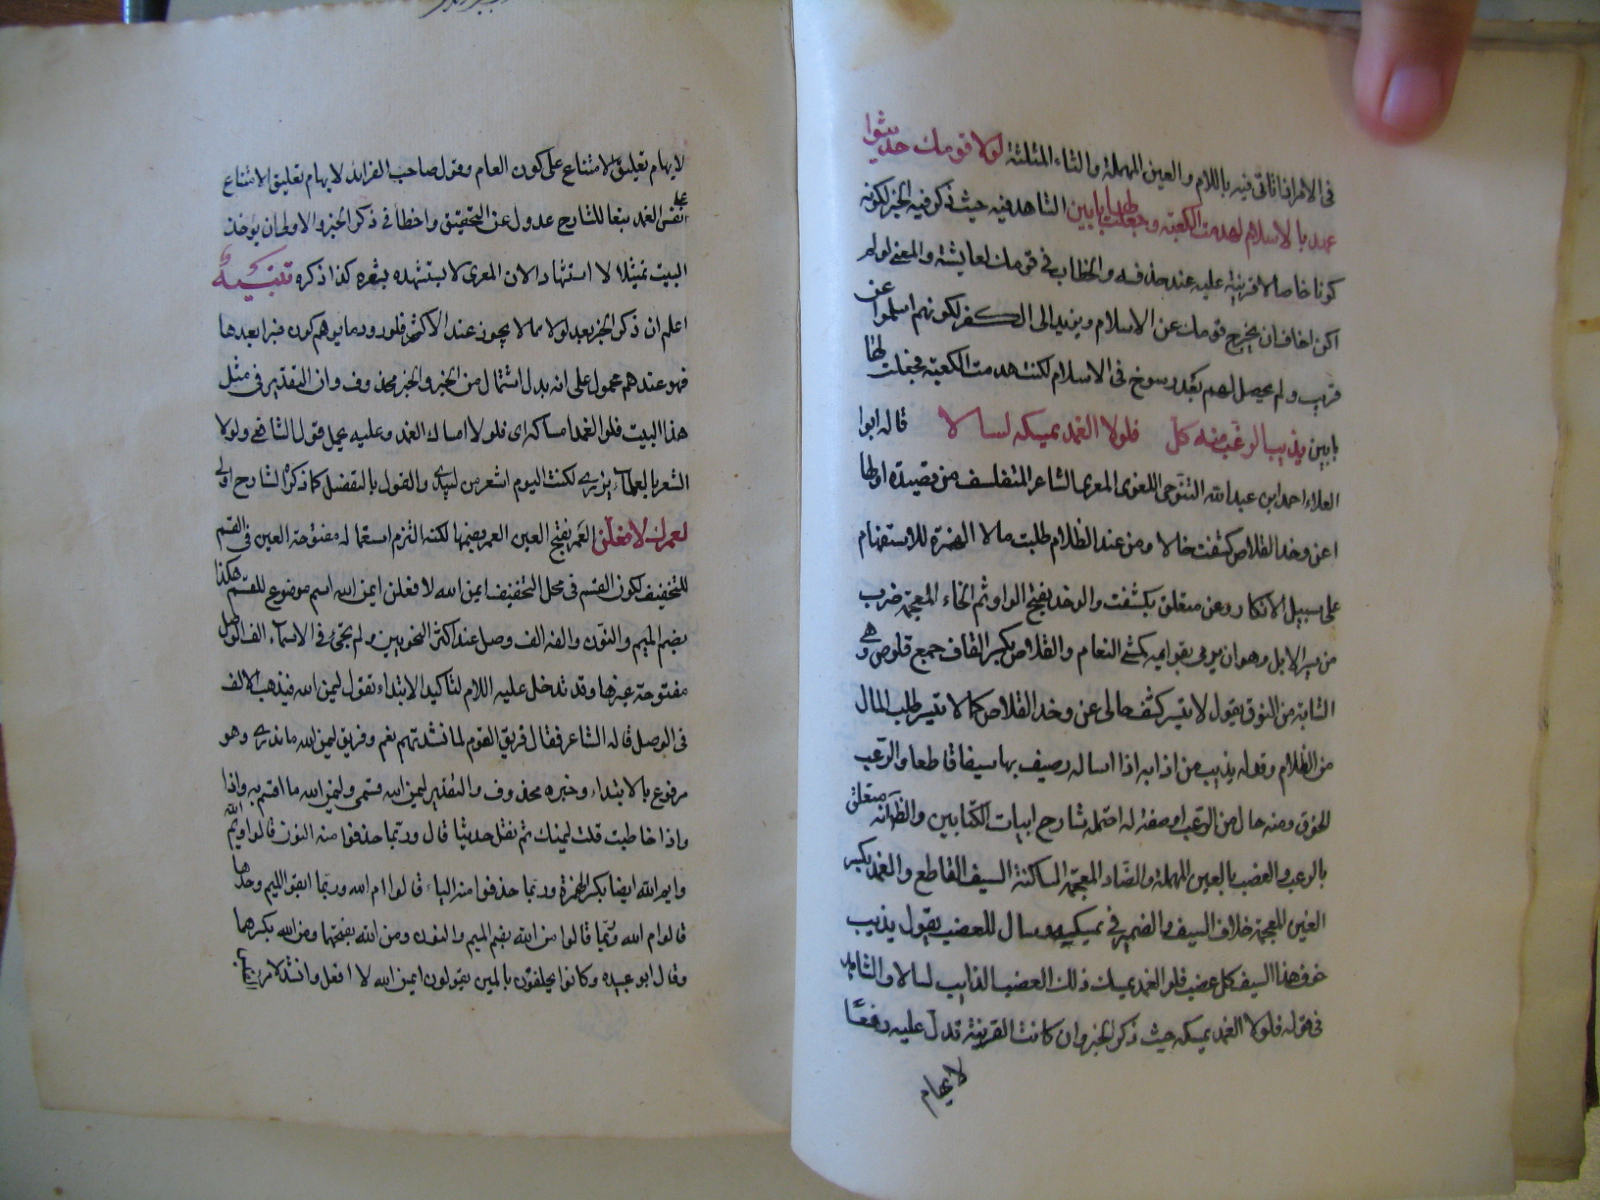 في الامر اذا تأتى فيه باللام والعين المهملة والثاء المثلثة لولا قومك حديثوا
عهد بالاسلام لهدمت الكعبة وجعلت لها بابين الشاهد فيه حيث ذكر فيه الخبر لكونه
كونا خاصا لا قرينة عليه عند حذفه والخطاب في قومك لعايشة والمعنى لو لم
اكن اخاف ان يخرج قومك عن الاسلام ويرتد الى الكفر لكونهم اسلموا عن
قريب ولم يحصل لهم بعد رسوخ في الاسلام لكنت هدمت الكعبة فجعلت لها
بابين يذيب الرعب منه كل فلولا الغمد يمسكه لسالا قاله ابوا
العلاء احمد ابن عبد الله التنوخي اللغوي المعري الشاعر المتفلسف من قصيدة اولها
اعن وخد القلاص كشفت حالا ومن عند الظلام طلبت مالا الهمزة للاستفهام
على سبيل الانكار وعن متعلق بكشفت والوخد بفتح الواو ثم الخاء المعجمة ضرب
من سير الابل وهو ان يرمي بقوايمه كمشي النعام والقلاص بكسر القاف جمع قلوص وهي
الشابة من النوق يقول لا يتيسر كشف حالي عن وخد القلاص كما لا يتيسر طلب المال
من الظلام وقوله يذيب من اذابه اذا اساله ويصف بها سيفا قاطعا والرعب
الخوف ومنه حال من الرعب او صفة له احتمله شارح ابيات الكتابين والظ انه متعلق
بالرعب والعضب بالعين المهملة والضاد المعجمة الساكنة السيف القاطع والغمد بكسر
الغين المعجمة غلاف السيف والضمير في يمسكه وسال للعضب يقول يذيب
خوف هذا السيف كل عضب فلو الغمد يمسك ذلك العضب الذايب لسالا والشاهد
في قوله فلولا الغمد يمسكه حيث ذكر الخبر وان كانت القرينة تدل عليه دفعًا
لايهام
لايهام تعليق الامتناع على كون العام وقول صاحب الفرائد لايهام تعليق الامتناع على
نفس الغمد تبعا للشارح عدول عن التحقيق واخطأ في ذكر الخبر والاولى ان يؤخذ
البيت تمثيلا لا استشهادا لان المعري لا يستشهد بشعره كذا ذكره تنبيه
اعلم ان ذكر الخبر بعد لولا مما لا يجوز عند الاكثر فلو ورد ما يوهم كون خبرا بعدها
فهو عندهم محمول على انه بدل اشتمال من الخبر والخبر محذوف وان التقدير في مثل
هذا البيت فلولا الغمد امساكه اى فلولا امساك الغمد وعليه يحمل قول الشافعي ولولا
الشعر بالعلماء يزري لكنت اليوم اشعر من لبيد والقول بالتفضل كما ذكره الشارح اولى
لعمرك لافعلن العمر بفتح العين العمر بضمها لكنه التزم استعماله مفتوحة العين في القسم
للتخفيف لكون القسم في محل التخفيف ايمن الله لافعلن ايمن الله اسم موضوع للقسم هكذا
بضم الميم والنون والفه الف وصل عند اكثر النحويين ولم تجئ في الاسماء الف الوصل
مفتوحة غيرها وقد تدخل عليه اللام لتأكيد الابتداء تقول ليمن الله فيذهب الالف
في الوصل قال الشاعر فقال فريق القوم لما نشدتهم نعم وفريق ليمن الله ما ندري وهو
مرفوع بالابتداء وخبره محذوف والتقدير ليمن الله قسمي وليمن الله ما اقسم به واذا
واذا خاطبت قلت ليمنك ثم نقل حديثا قال وربما حذفوا منه النون قالوا وايم الله
وايم الله ايضا بكسر الهمزة وربما حذفوا منه الياء قالوا ام الله وربما ابقوا الميم وحدها
قالوا م الله وربما قالوا من الله بضم الميم والنون ومن الله بفتحها ومن الله بكسرهما
وقال ابو عبيد وكانوا يحلفون باليمين يقولون ايمن الله لا افعل وانشد لامرئ